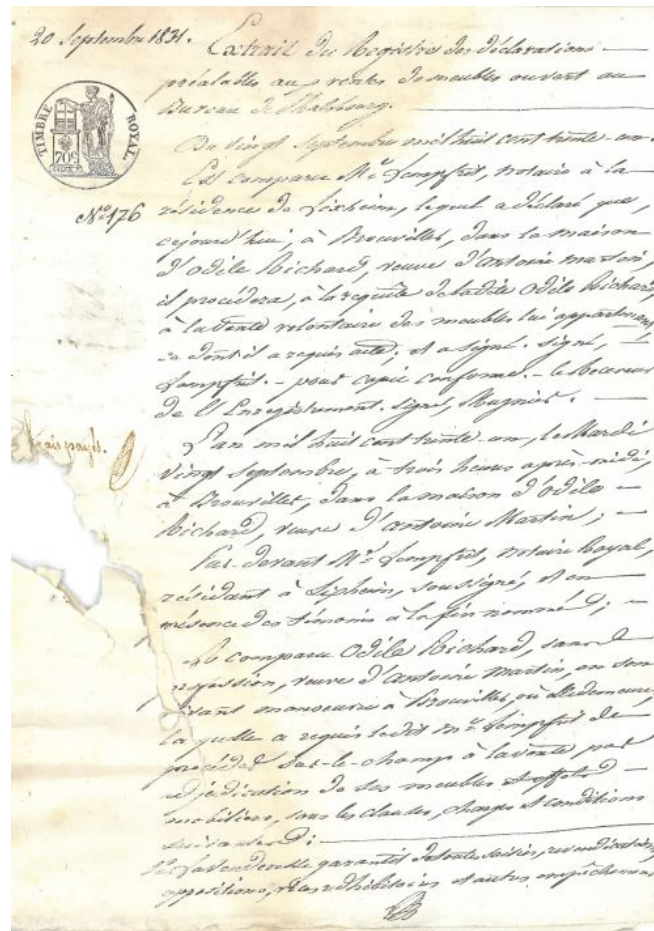 20 Septembre 1831.
Extrait du Registre des déclarations
préalables aux ventes de meubles ouvert au
Bureau de Phalsbourg.
TIMBRE ROYAL.
70c
Du vingt Septembre mil huit cent trente-un.
Est comparu Me Lempfrit, notaire à la
No 176
résidence de Lixheim, lequel a déclaré que,
cejourd'hui, à Brouviller, dans la maison
d'Odile Richard, veuve d'Antoine Martin,
il procédera, à la requête de ladite Odile Richard,
à la vente volontaire des meubles lui appartenant,
ce dont il a requis acte; et a signé. Signé,
Lempfrit. - pour copie conforme. - le Receveur
de l'Enregistrement. Signé, Mugnier.
frais payés.
L'an mil huit cent trente-un, le Mardi
vingt Septembre, à trois heures après-midi,
à Brouviller, dans la maison d'Odile
Richard, veuve d'Antoine Martin;
Par-devant Me Lempfrit, notaire Royal,
résidant à Lixheim, soussigné, et en
présence des témoins à la fin nommés;
A comparu Odile Richard, sans
profession, veuve d'Antoine Martin, en son
vivant manoeuvre à Brouviller, où elle demeure,
laquelle a requis ledit Me Lempfrit de
procéder sur-le-champ à la vente par
adjudication de ses meubles et effets
mobiliers, sous les clauses, charges et conditions
suivantes:
La venderesse garantit de toutes saisies, revendications,
oppositions, vices rédhibitoires et autres empêchemens